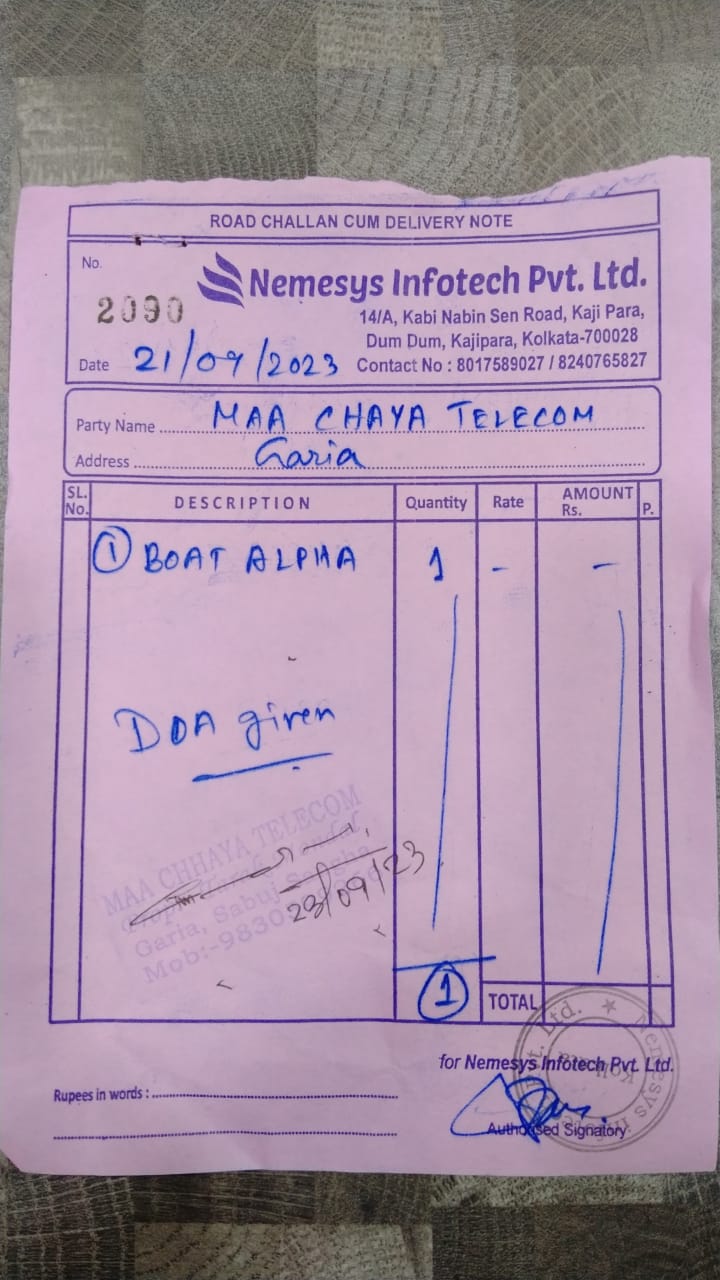 ROAD CHALLAN CUM DELIVERY NOTE
No.
2090
Nemesys Infotech Pvt. Ltd.
14/A, Kabi Nabin Sen Road, Kaji Para,
Dum Dum, Kajipara, Kolkata-700028
Date 21/09/2023 Contact No : 8017589027 / 8240765827
Party Name MAA CHAYA TELECOM
Address Garia
SL. No. DESCRIPTION Quantity Rate AMOUNT Rs. P.
① BOAT ALPHA 1 - -
DOA given
MAA CHHAYA TELECOM
Garia, Sabuj
Mob:-9830
23/09/23
1 TOTAL
for Nemesys Infotech Pvt. Ltd.
Rupees in words :
Authorised Signatory
Nemesys Pvt. Ltd. ★